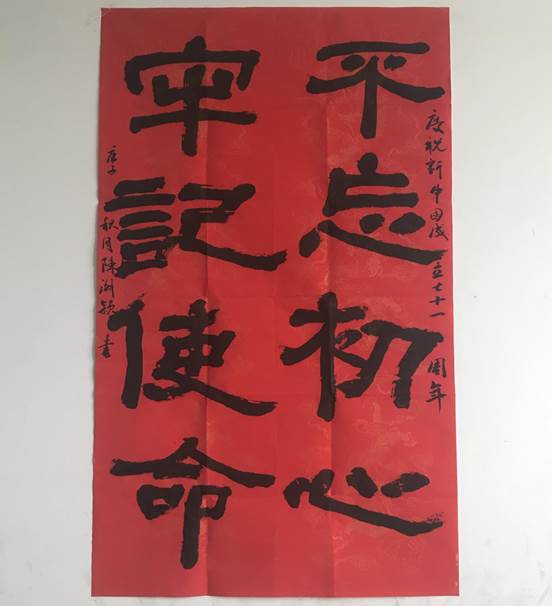 慶祝新中国成立七十一周年
不忘初心
牢記使命
庚子秋月陈湖颖书